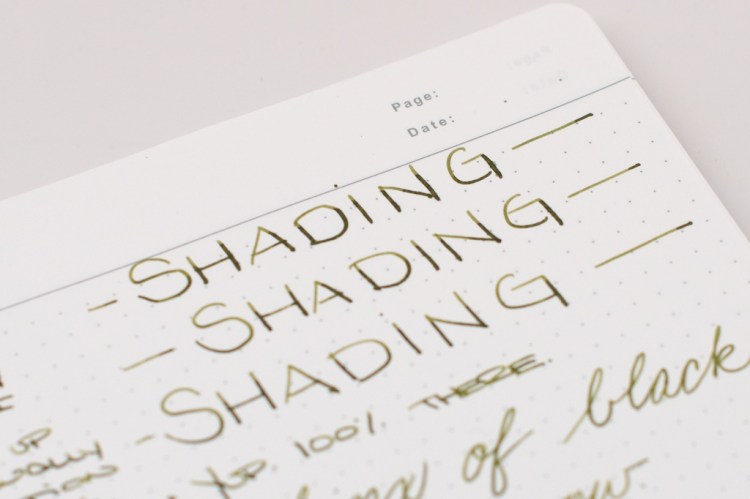 Page:
Date:
- SHADING —
- SHADING —
- SHADING
—
UP
YUP. 100% THERE.
of black